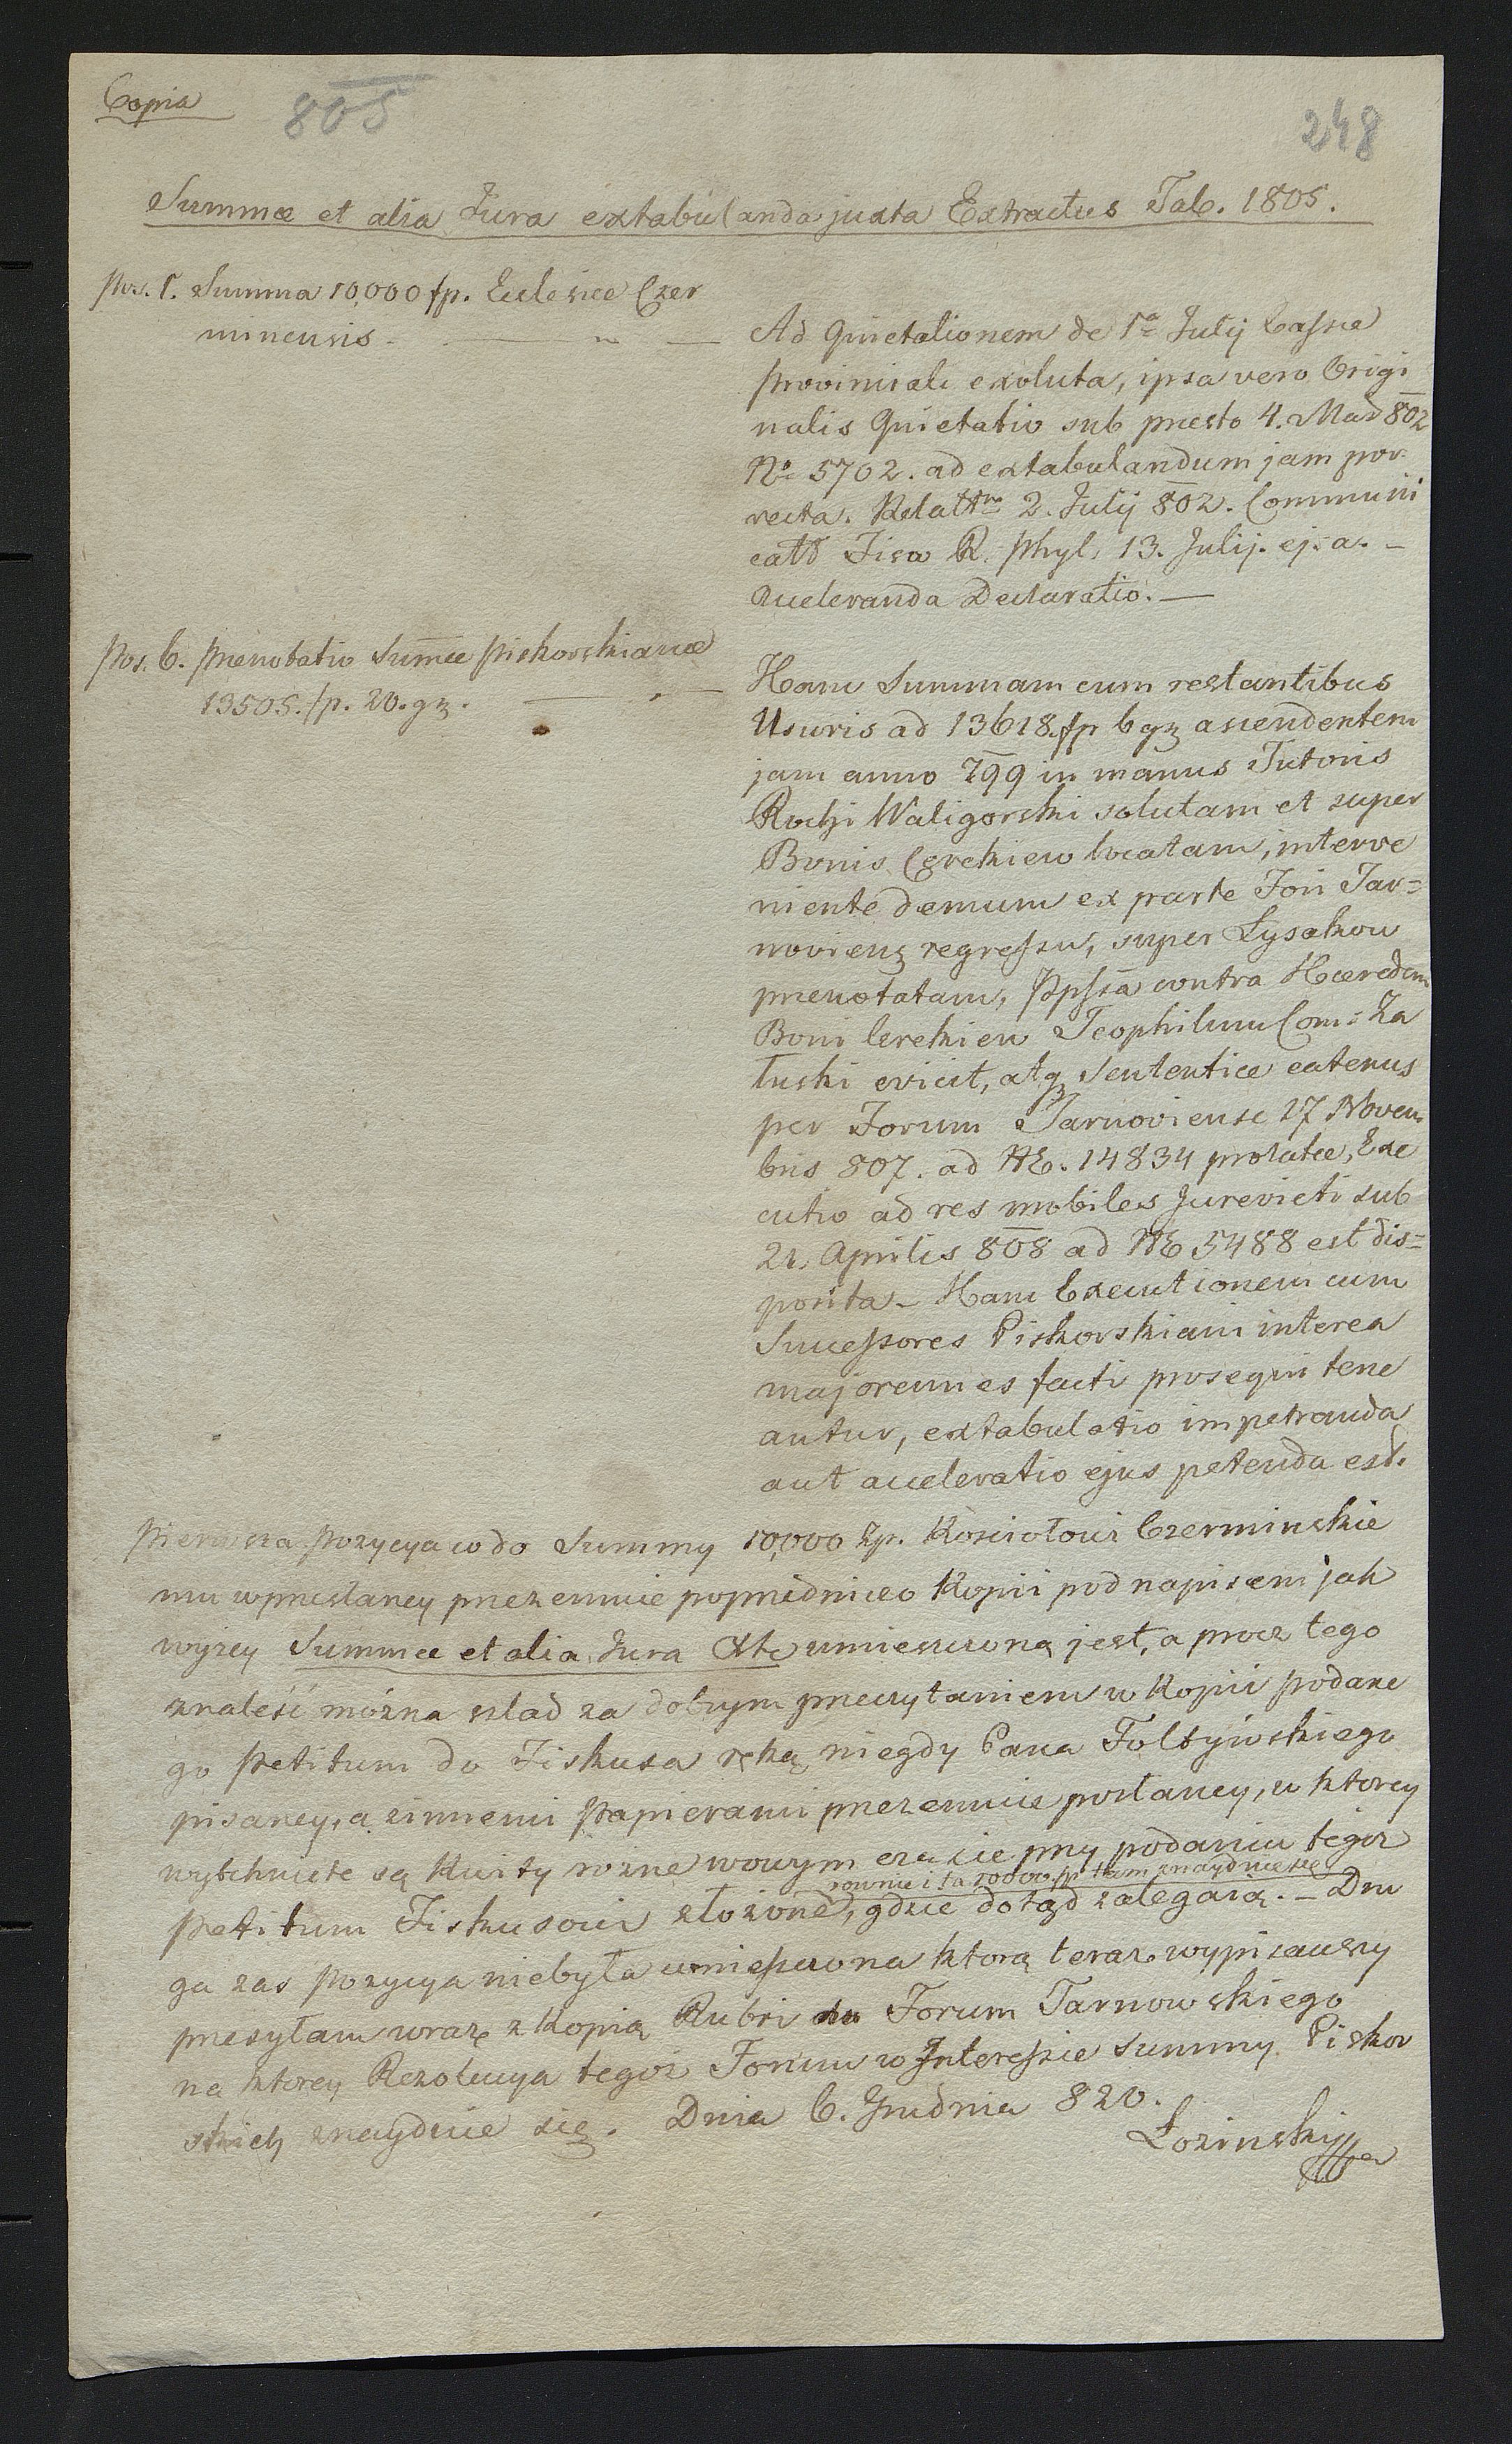 Copia
805
248
Summæ et alia Jura extabulanda juxta Extractus Tab. 1805.
Pos. 1. Summa 10,000 fp. Eclesiæ Czer
minensis
Ad Quietationem de 1a Julij Cassæ
provinciali exoluta, ipsa vero Origi
nalis Quietatio sub præsto 4. Mad 802
No 5702. ad extabulandum jam por
recta. Relattm 2. Julij 802. Communi
catd Fisco R. Phyl. 13. Julij. ej. a. -
Acceleranda Declaratio. —
Pos. 6. prenotatio Sumæ Piskorskianæ
13505. fp. 20. gz.
Hanc Summam cum restantibus
Usuris ad 13618. fp 6 gz ascendentem
jam anno 799 in manus Tutoris
Rochi Waligorski solutam et super
Bonis Cerekiew locatam, interve
niente demum ex parte Fori Tar=
noviens regressu, super Łysakow
prenotatam, contra Hæredem
Boni Cerekiew Teophilum Com: Za
łuski evicit, atq Sententiæ eatenus
per Forum Tarnoviense 17 Novem
bris 807. ad NE. 14834 prolatæ, Exe
cutio ad res mobiles Jurevicti sub
21. Aprilis 808 ad NE 5488 est dis=
posita - Hanc Executionem cum
Successores Piskorskiani interea
majorennes facti prosequi tene
antur, extabulatio impetranda
aut acceleratio ejus petenda est.
Pierwsza pozycya co do Summy 10,000 Zp. Kosciołowi Czerminskie
mu w przesłaney przezemnie poprzedniczo Kopii pod napisem jak
wyżey Summæ et alia Jura Xtc umieszczoną jest, a procz tego
znaleść można szlad za dobrym przeczytaniem w Kopii podane
go Petitum do Fiskusa ręką niegdy Pana Foltyńskiego
pisaney, a z innemi Papierami przezemnie posłaney, w ktorey
wytchnięte są Kwity rozne wowym czasie przy podaniu tegoz
rownie i ta 10000. fp tam znayduie się
Petitum Fiskusowi złożone, gdzie dotąd zalegaią. - Dru
ga zas pozycya niebyła umieszczona ktorą teraz wypisawszy
przesyłam wraz z Kopią Rubri do Forum Tarnowskiego
na ktorey Rezolucya tegoz Forum w Interessie Summy Piskor
skich znayduie się. Dnia 6. Grudnia 820.
Łozinski